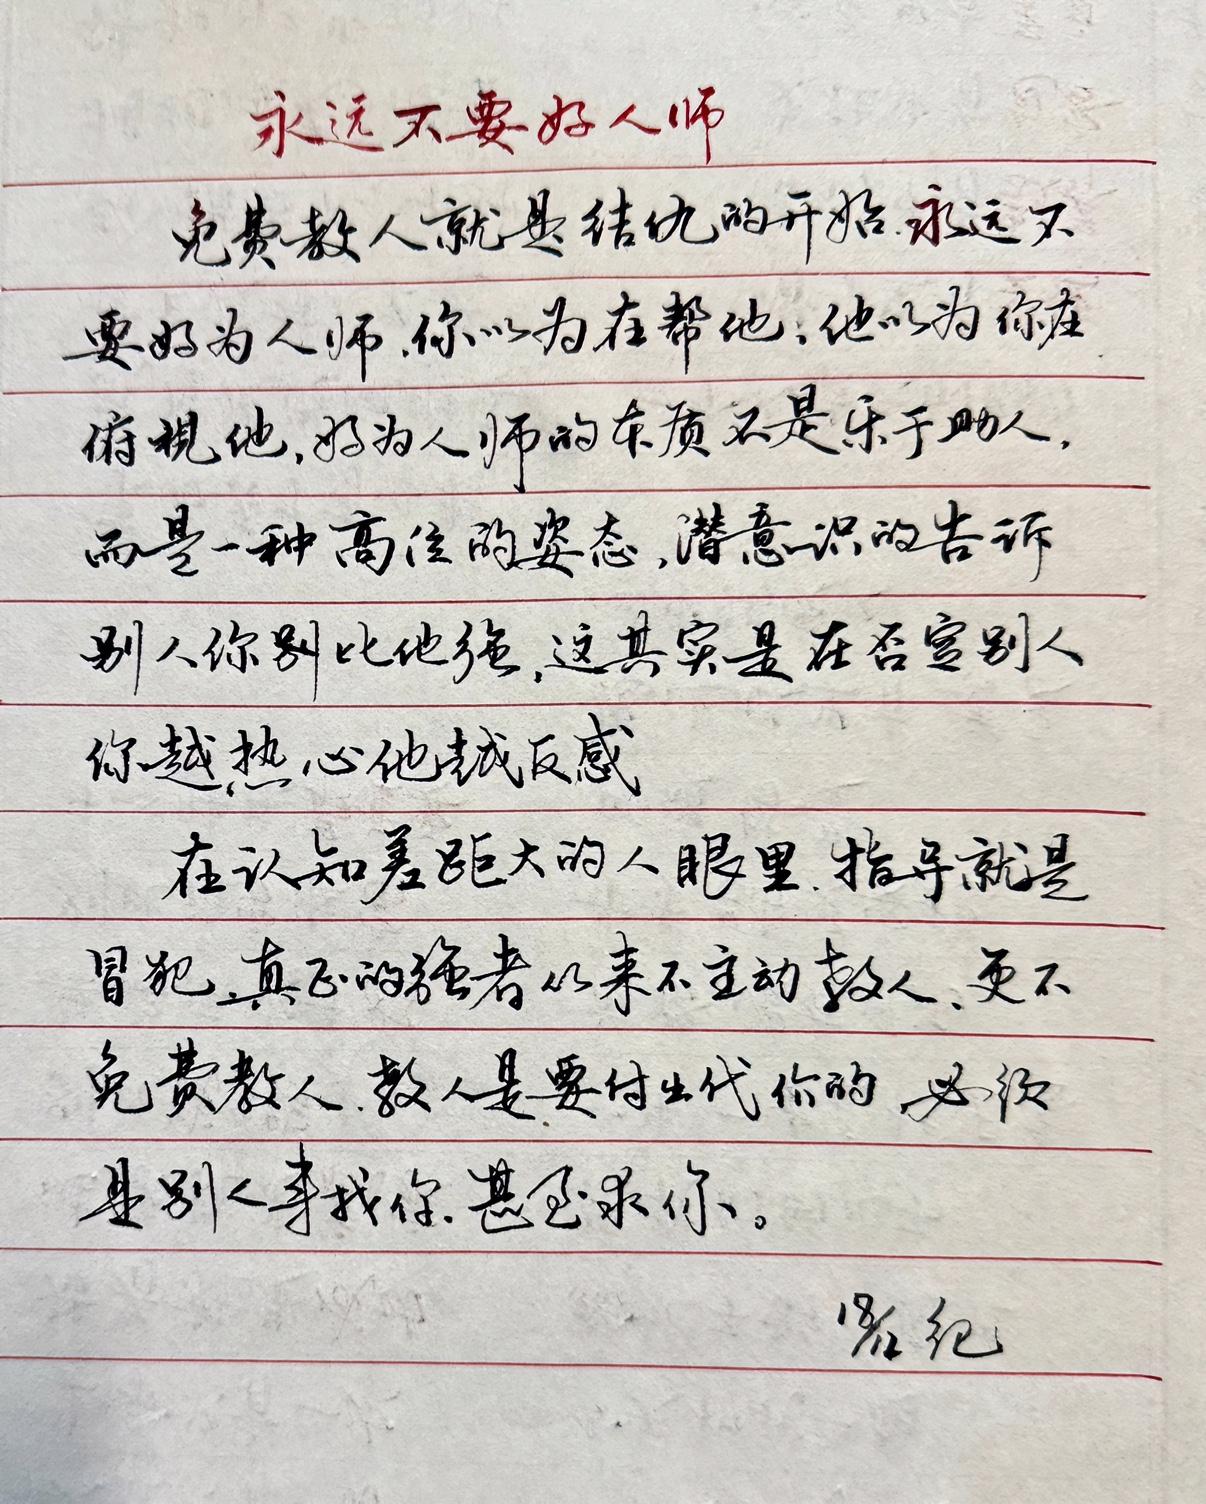 永远不要好人师
免费教人就是结仇的开始.永远不
要好为人师.你以为在帮他,他以为你在
俯视他,好为人师的本质不是乐于助人,
而是一种高位的姿态,潜意识的告诉
别人你别比他强,这其实是在否定别人
你越热心他越反感
在认知差距大的人眼里.指导就是
冒犯,真正的强者从来不主动教人、更不
免费教人.教人是要付出代价的 必须
是别人来找你.甚至求你。
纪